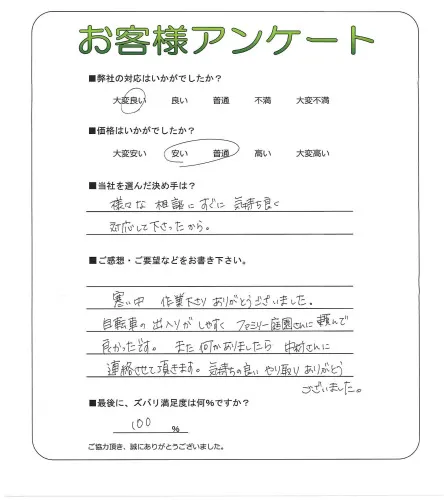 お客様アンケート
■弊社の対応はいかがでしたか？
大変良い 良い 普通 不満 大変不満
■価格はいかがでしたか？
大変安い 安い 普通 高い 大変高い
■当社を選んだ決め手は？
様々な 相談に すぐに 気持ち良く
対応して下さったから。
■ご感想・ご要望などをお書き下さい。
寒い中 作業下さり ありがとうございました。
自転車の 出入りが しやすく ファミリー庭園さんに 頼んで
良かったです。 また 何かありましたら 中村さんに
連絡させて頂きます。 気持ちの良い やり取り ありがとう
ございました。
■最後に、ズバリ満足度は何%ですか？
100 %
ご協力頂き、誠にありがとうございました。